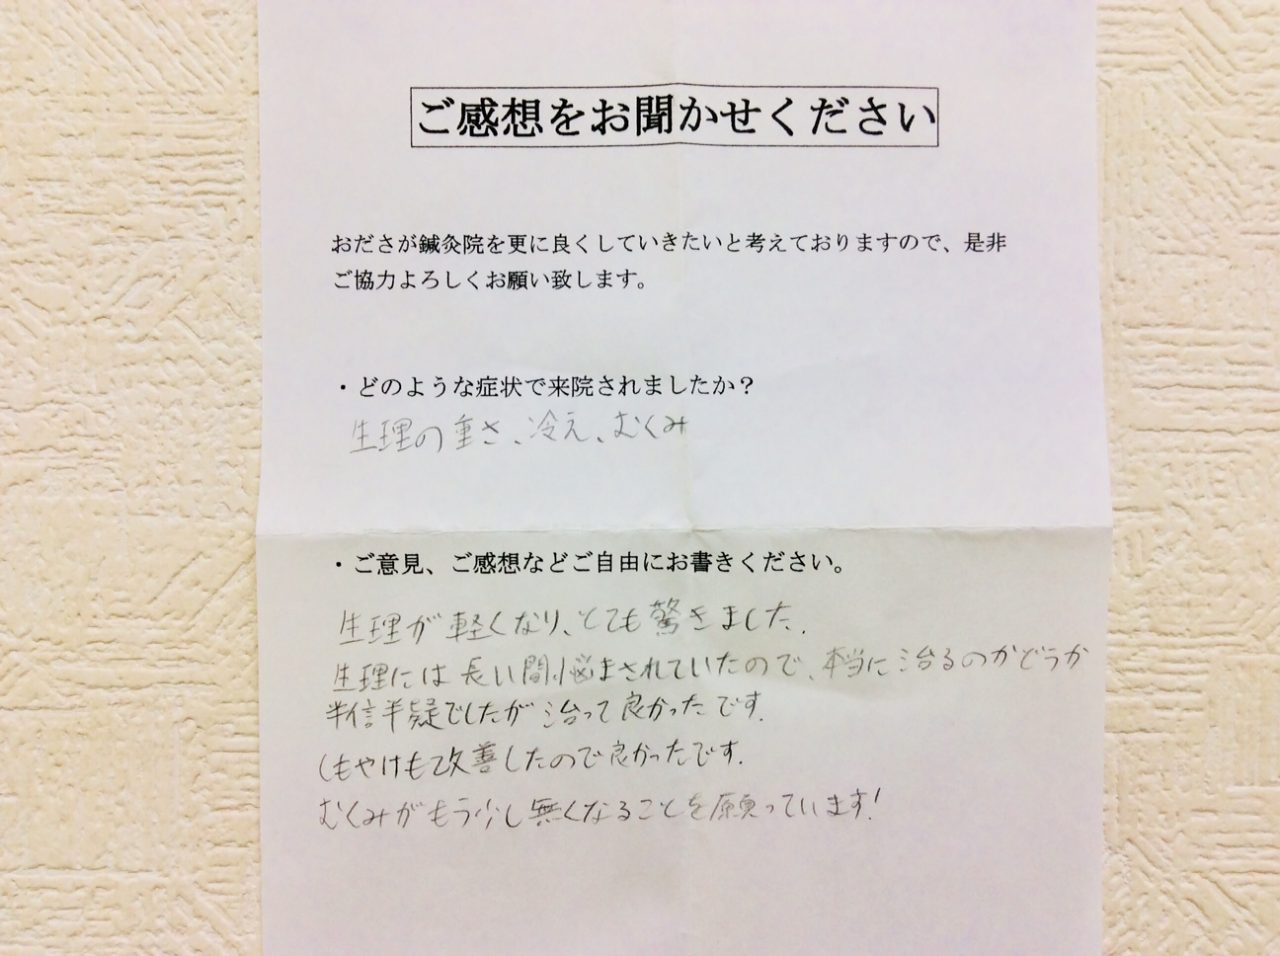 ご感想をお聞かせください
おださが鍼灸院を更に良くしていきたいと考えておりますので、是非
ご協力よろしくお願い致します。
・どのような症状で来院されましたか？
生理の重さ、冷え、むくみ
・ご意見、ご感想などご自由にお書きください。
生理が軽くなり、とても驚きました.
生理には長い間悩まされていたので、本当に治るのかどうか
半信半疑でしたが治って良かったです.
しもやけも改善したので良かったです.
むくみがもう少し無くなることを願っています!